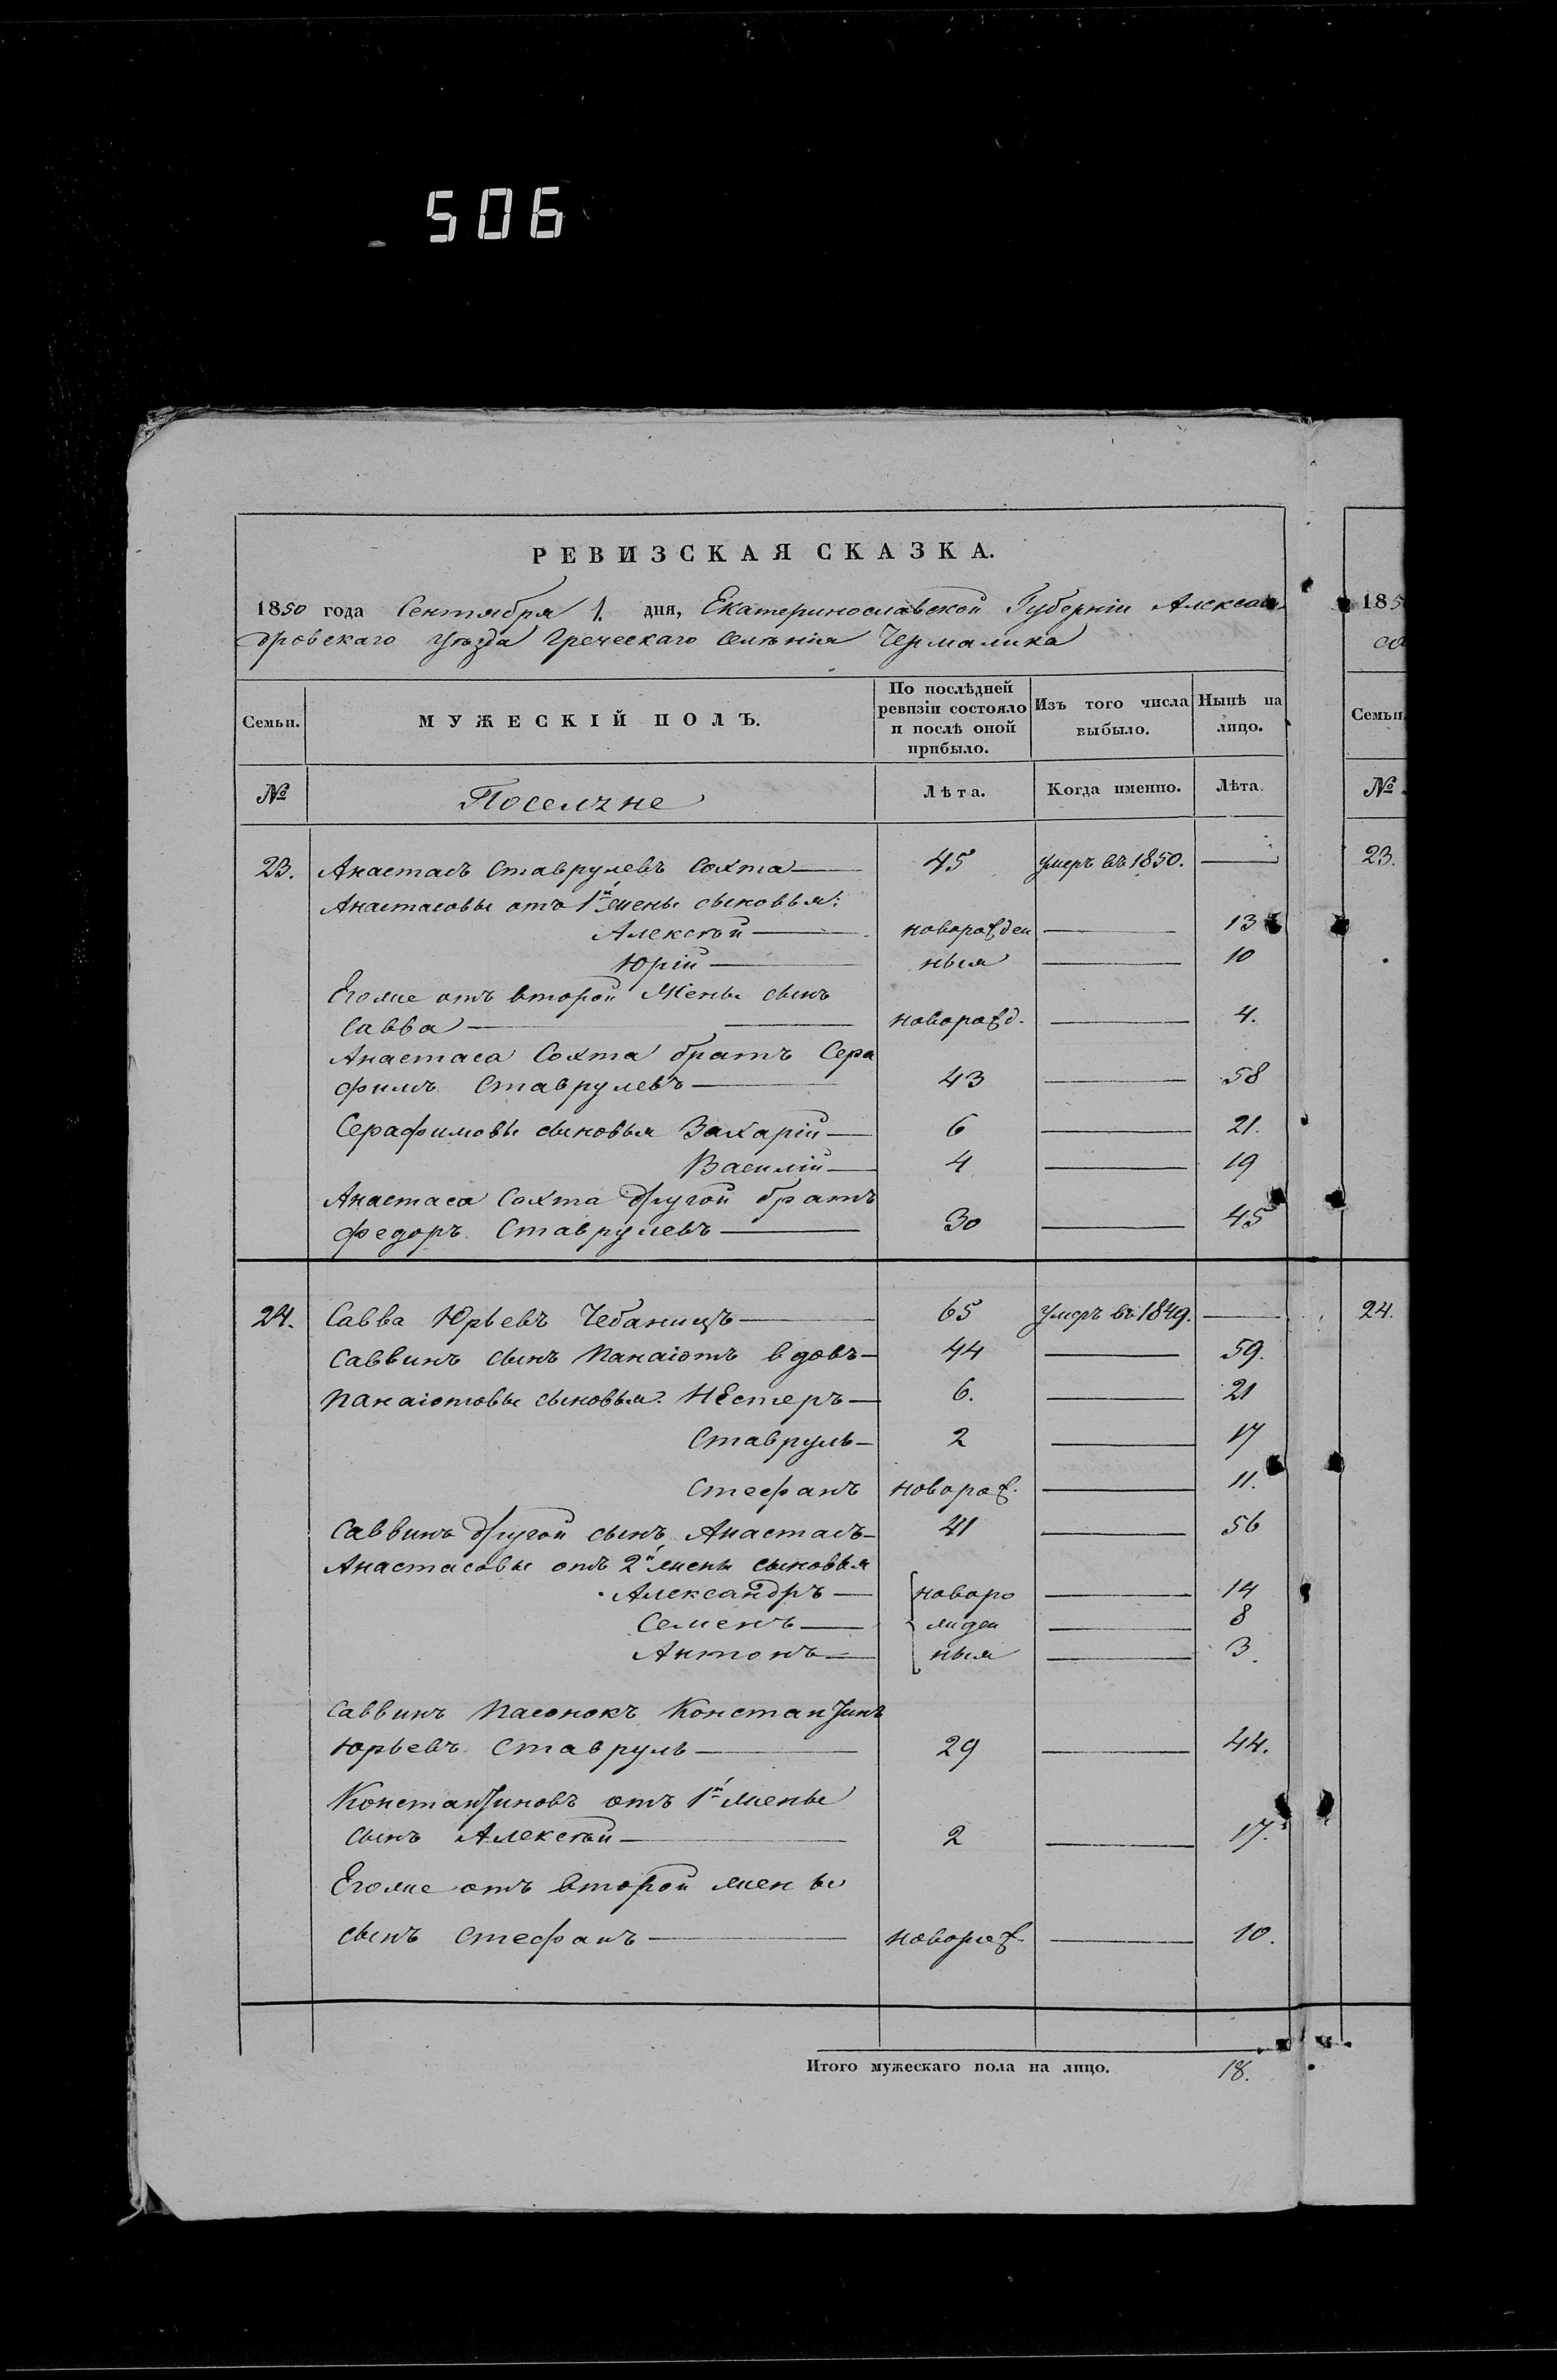 506
РЕВИЗСКАЯ СКАЗКА.
1850 года Сентября 1. дня, Екатеринославской Губерніи Алексан
дровскаго Уѣзда Греческаго Селѣнія Чермалика
Семьи. МУЖЕСКІЙ ПОЛЪ. По послѣдней ревизіи состояло и послѣ оной прибыло. Изъ того числа выбыло. Нынѣ на лицо.
№ Поселяне Лѣта. Когда именно. Лѣта.
23. Анастасъ Ставрулевъ Сохта 45 умеръ въ 1850.
Анастасовы отъ 1й жены сыновья:
Алексѣй новорожден 13
Юрій ныя 10
Егоже отъ второй Жены сынъ
Савва новорожд. 4.
Анастаса Сохта братъ Сера
фимъ Ставрулевъ 43 58
Серафимовы сыновья Захарій 6 21.
Василій 4 19
Анастаса Сохта другой братъ
Федоръ Ставрулевъ 30 45
24. Савва Юрьевъ Чебаницъ 65 Умеръ въ 1849.
Саввинъ сынъ Панаіотъ вдовъ 44 59.
Панаіотовы сыновья: Нестеръ 6. 21
Ставруль 2 17
Стефанъ новорож. 11.
Саввинъ другой сынъ Анастасъ 41 56
Анастасовы отъ 2й жены сыновья
Александръ новоро 14
Семенъ жден 8
Антонъ ныя 3.
Саввинъ Пасонокъ Константинъ
Юрьевъ Ставруль 29 44.
Константиновъ отъ 1й жены
сынъ Алексѣй 2 17.
Егоже отъ второй жены
сынъ Стефанъ новорож. 10.
Итого мужескаго пола на лицо. 18.
185
Семьи
№
23.
24.